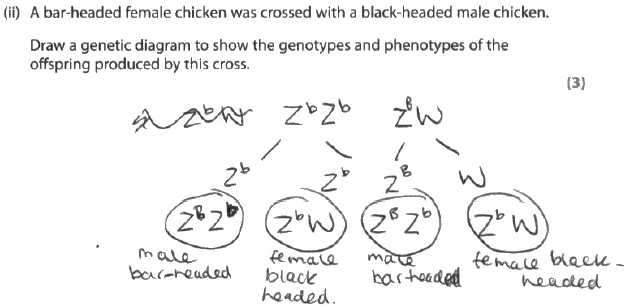 (ii) A bar-headed female chicken was crossed with a black-headed male chicken.
Draw a genetic diagram to show the genotypes and phenotypes of the
offspring produced by this cross.
(3)
ZᵇZᵇ ZᴮW
Zᵇ Zᵇ Zᴮ W
ZᴮZᵇ ZᵇW ZᴮZᵇ ZᵇW
male female male female black-
bar-headed black bar headed headed
headed.